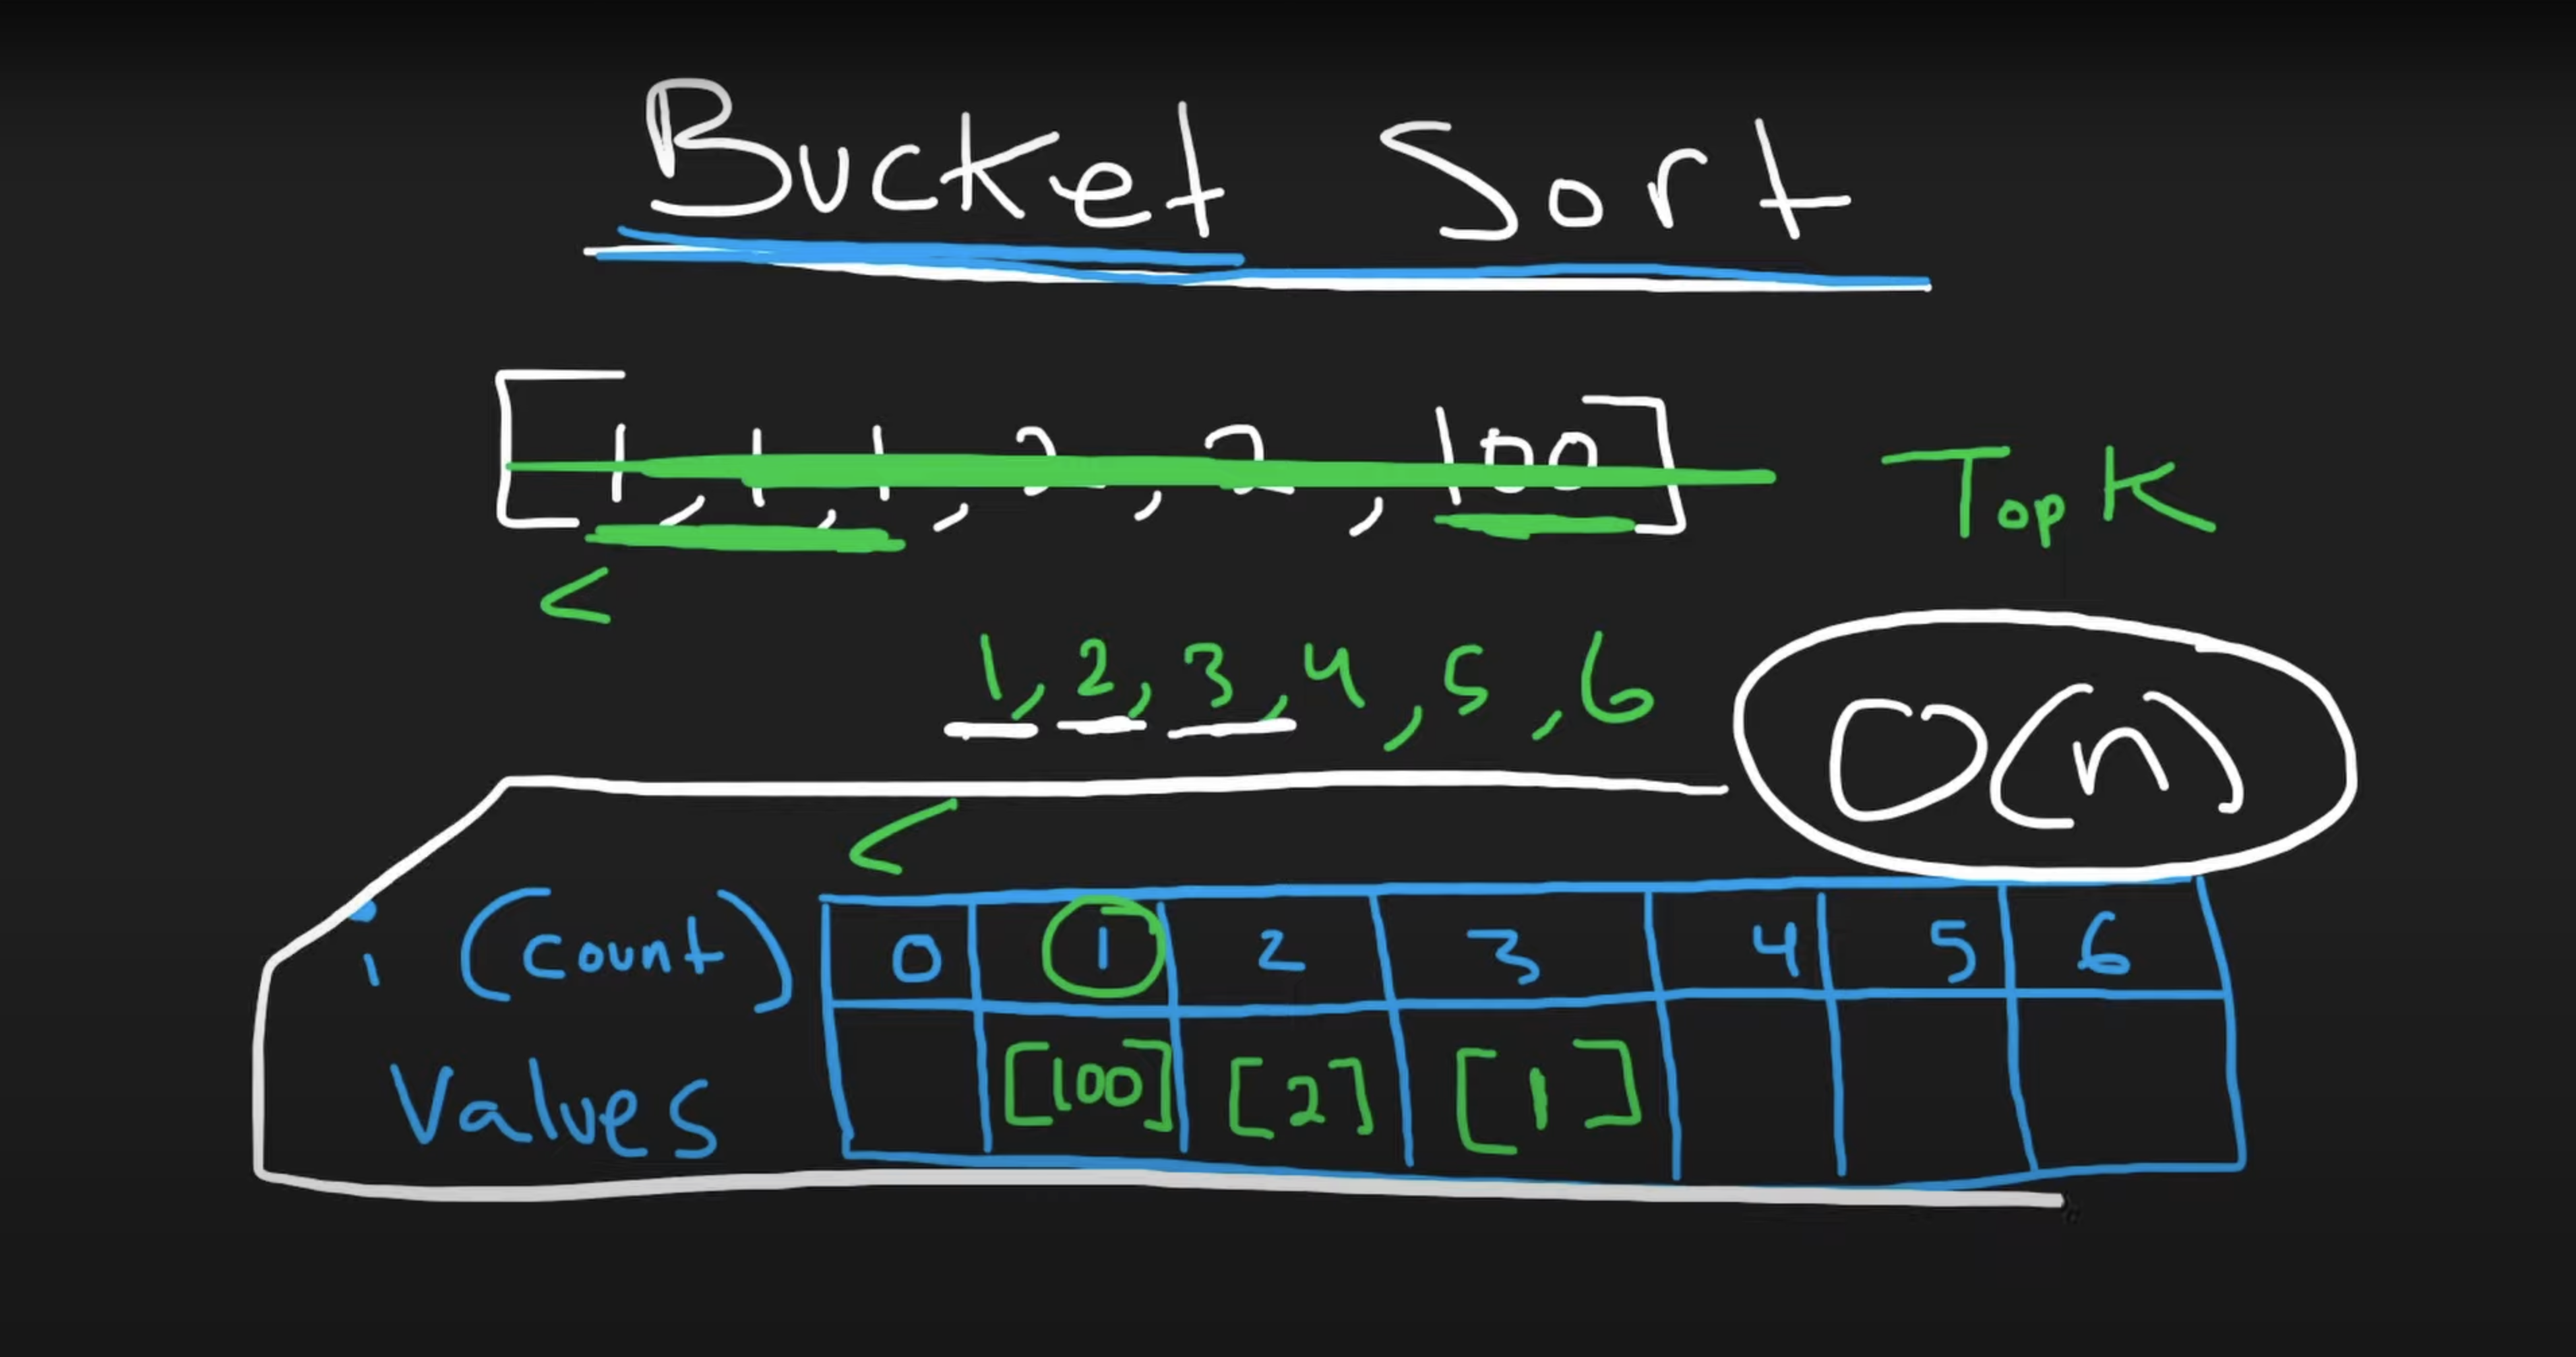 Bucket Sort
[1, 1, 1, 2, 2, 100]
Top K
<
1, 2, 3, 4, 5, 6
O(n)
<
i (count) 0 1 2 3 4 5 6
Values [100] [2] [1]